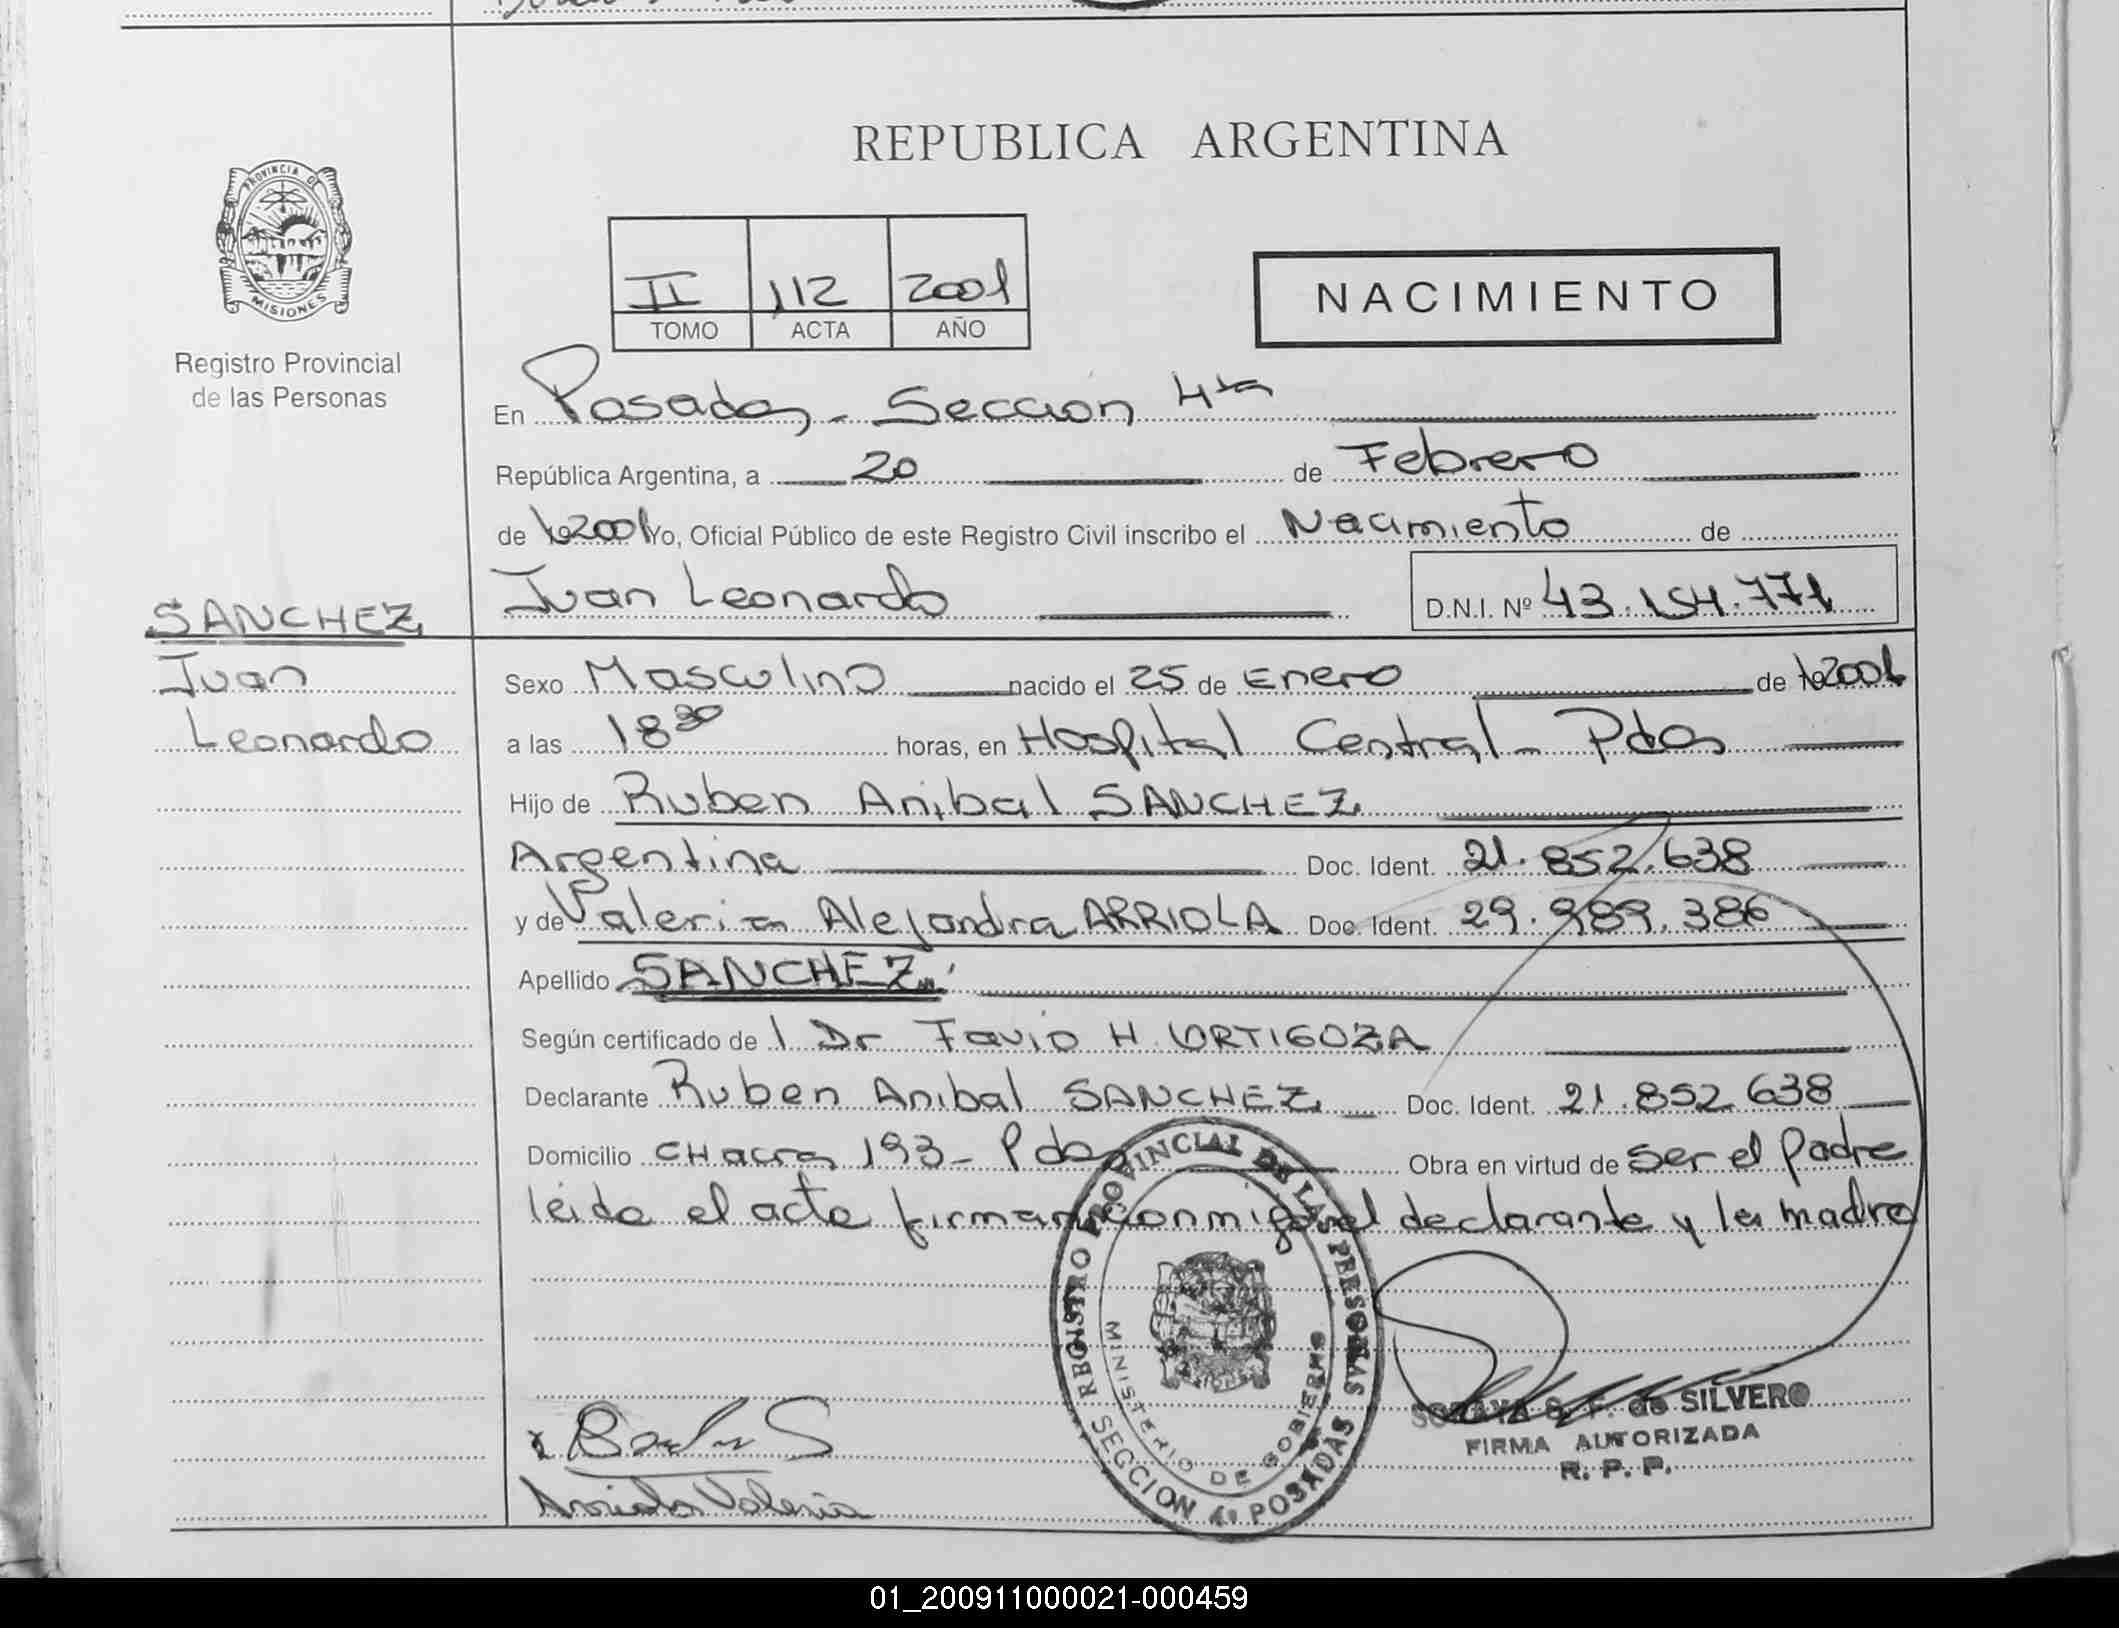 REPUBLICA ARGENTINA
PROVINCIA DE MISIONES
Registro Provincial
de las Personas
II 112 2001
TOMO ACTA AÑO
NACIMIENTO
En Posadas - Seccion 4ta
República Argentina, a 20 de Febrero
de 2001 Yo, Oficial Público de este Registro Civil inscribo el Nacimiento de
Juan Leonardo D.N.I. Nº 43.154.771
SANCHEZ
Juan
Leonardo
Sexo Masculino nacido el 25 de Enero de 2001
a las 18 30 horas, en Hospital Central - Pdas
Hijo de Ruben Anibal SANCHEZ
Argentina Doc. Ident. 21.852.638
y de Valeria Alejandra ARRIOLA Doc. Ident. 29.989.386
Apellido SANCHEZ
Según certificado de l Dr Favio H. ORTIGOZA
Declarante Ruben Anibal SANCHEZ Doc. Ident. 21.852.638
Domicilio CHacra 193 - Pdas Obra en virtud de ser el padre
leida el acta firman conmigo el declarante y la madre
REGISTRO PROVINCIAL DE LAS PERSONAS
MINISTERIO DE GOBIERNO
SECCION 4a POSADAS
S. F. de SILVERO
FIRMA AUTORIZADA
R. P. P.
Arriola Valeria
01_200911000021-000459